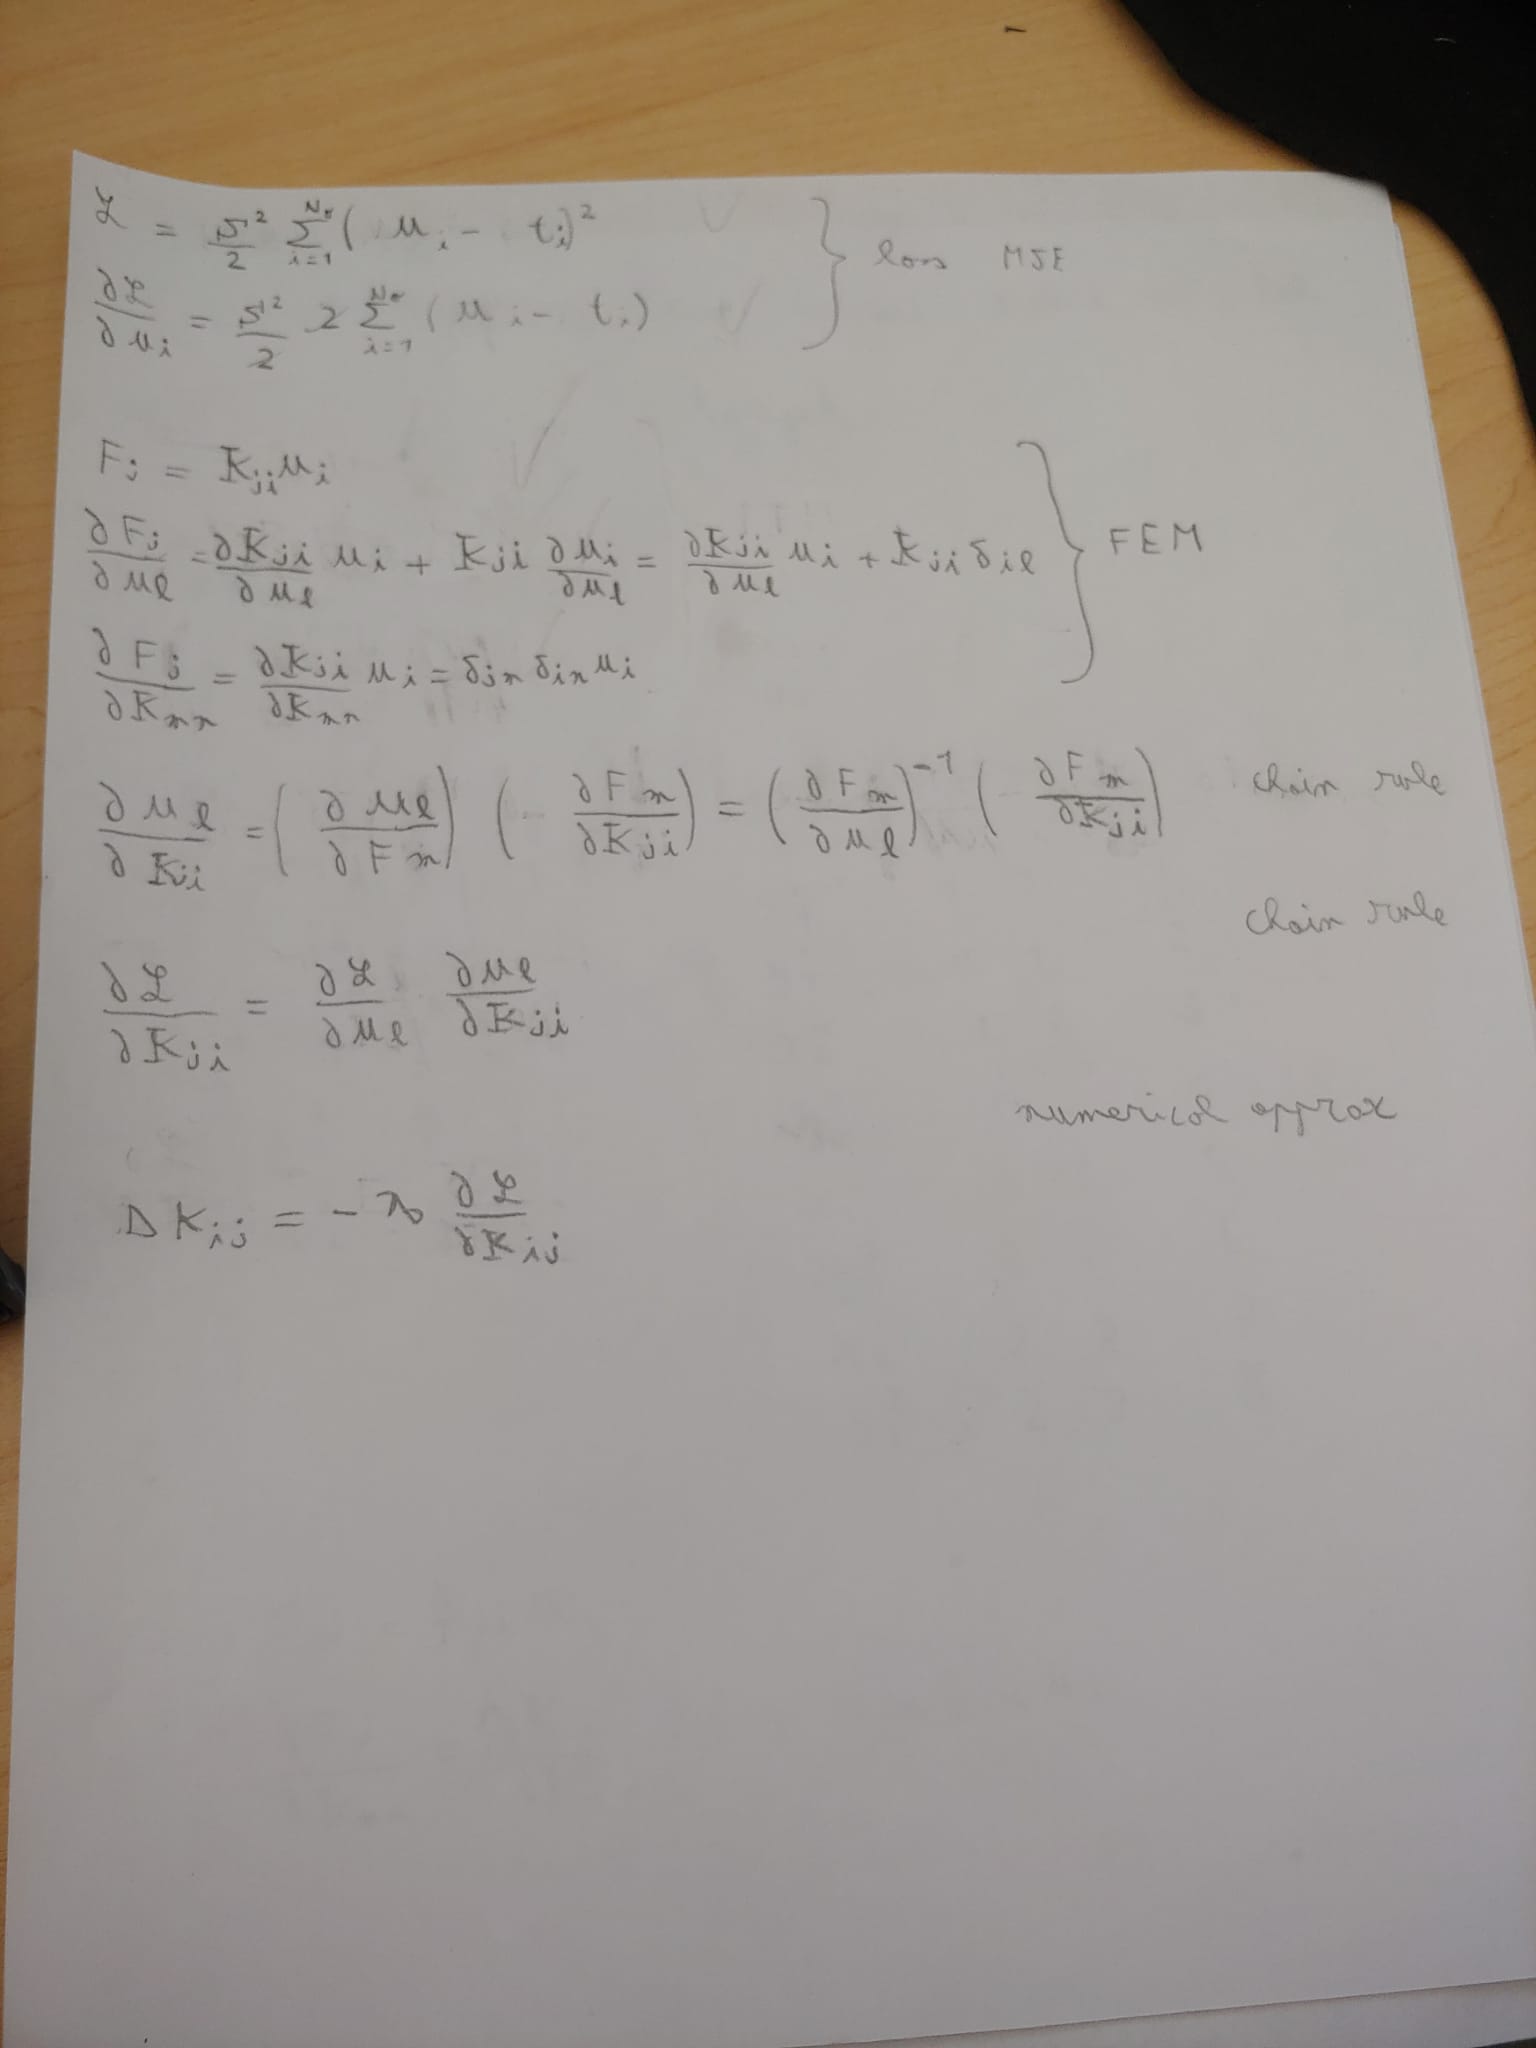 ℒ = S²/2 Σ_{i=1}^{N_σ} (u_i - t_i)²
∂ℒ/∂u_i = S²/2 2 Σ_{i=1}^{N_σ} (u_i - t_i)
loss MSE
F_j = K_{ji} u_i
∂F_j/∂u_l = ∂K_{ji}/∂u_l u_i + K_{ji} ∂u_i/∂u_l = ∂K_{ji}/∂u_l u_i + K_{ji} δ_{il}
FEM
∂F_j/∂K_{mn} = ∂K_{ji}/∂K_{mn} u_i = δ_{jn} δ_{in} u_i
∂u_l/∂K_{ji} = (∂u_l/∂F_m) (- ∂F_m/∂K_{ji}) = (∂F_m/∂u_l)^{-1} (- ∂F_m/∂K_{ji}) chain rule
chain rule
∂ℒ/∂K_{ji} = ∂ℒ/∂u_l ∂u_l/∂K_{ji}
numerical approx
ΔK_{ij} = - λ ∂ℒ/∂K_{ij}